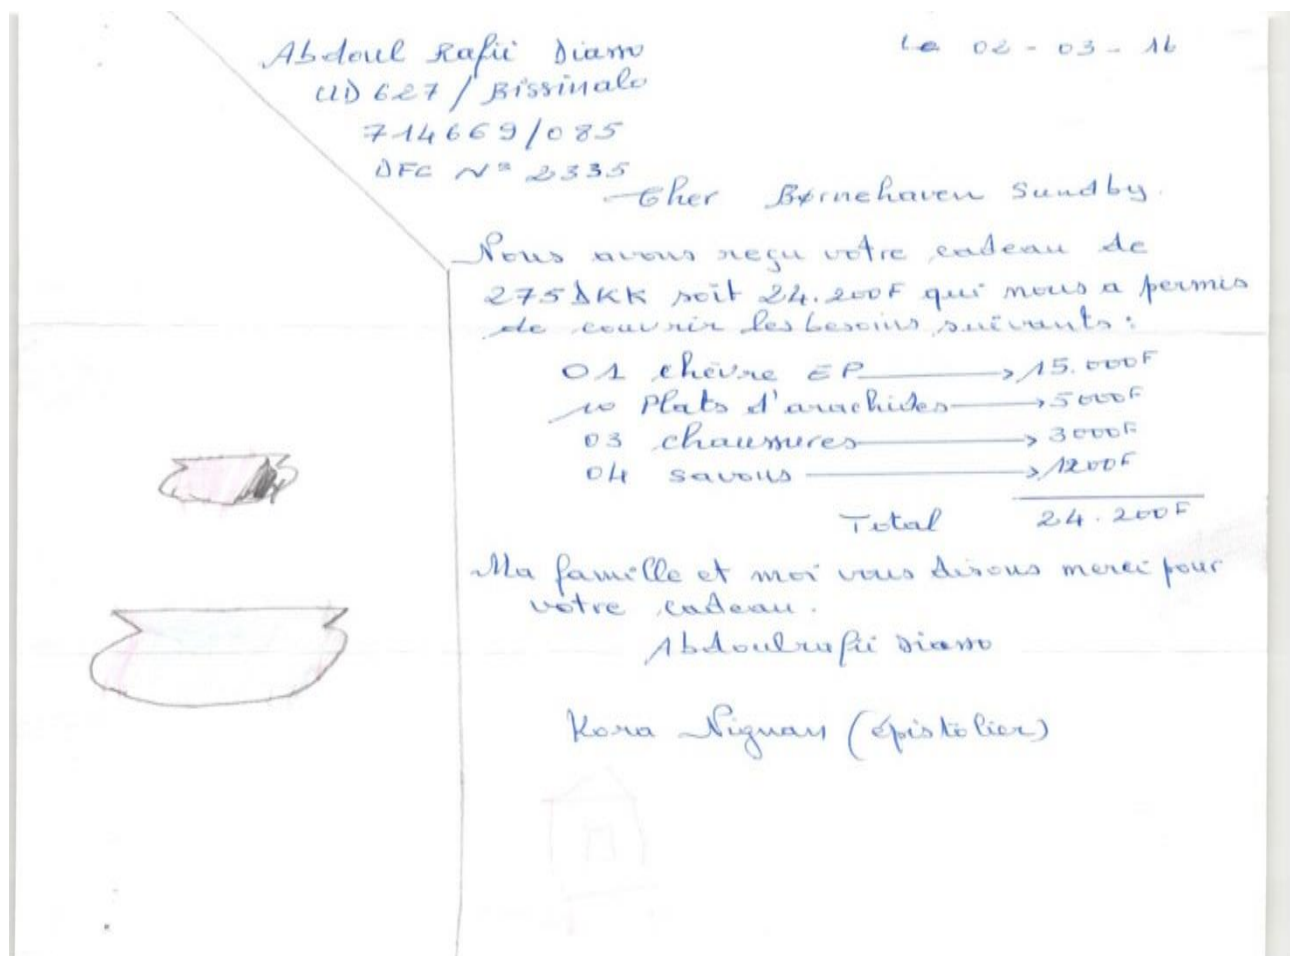 Abdoul Rafii Diasso
Le 02-03-16
UD 627 / Bissinalo
714669/085
DFC N° 2335
Cher Børnehaven Sundby.
Nous avons reçu votre cadeau de
275 DKK soit 24.200F qui nous a permis
de couvrir les besoins suivants :
01 chèvre EP → 15.000F
10 Plats d'arachides → 5000F
03 chaussures → 3000F
04 savons → 1200F
Total 24.200F
Ma famille et moi vous disons merci pour
votre cadeau.
Abdoulrafii Diasso
Kora Nignan (épistolier)